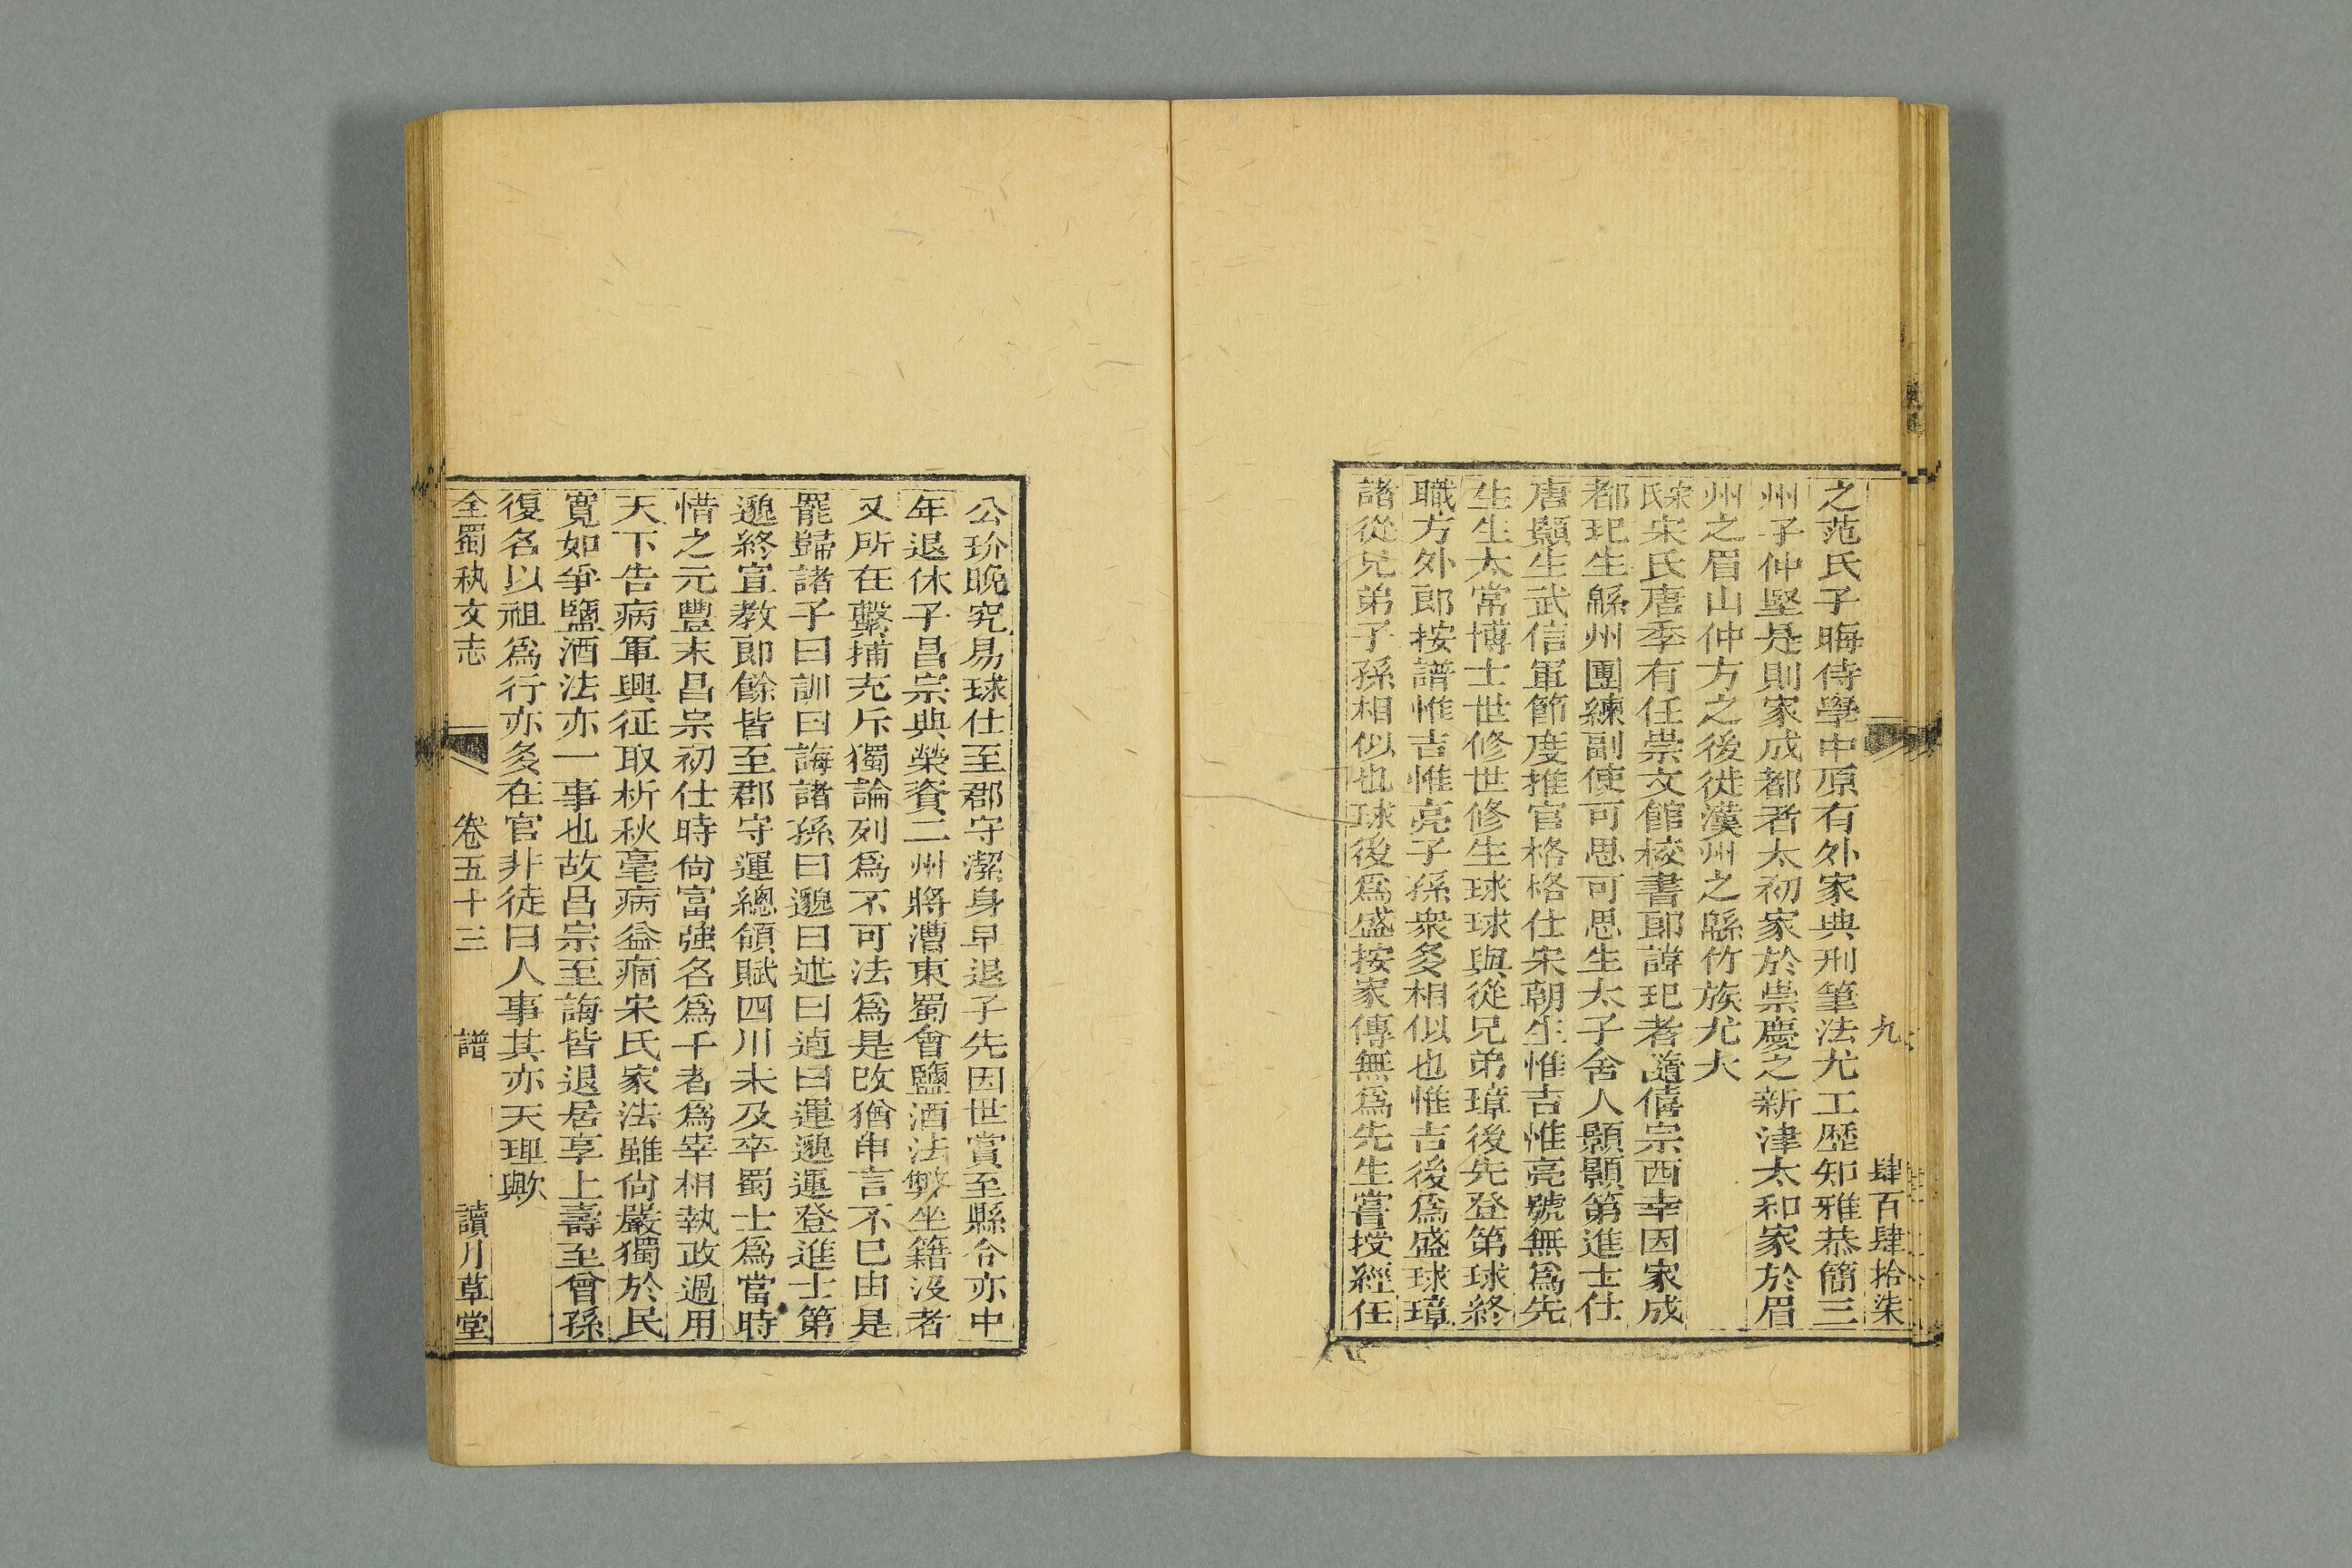 九　肆百肆拾柒
之范氏子晦侍學中原有外家典刑筆法尤工歷知雅恭簡三
州子仲堅是則家成都者太初家於崇慶之新津太和家於眉
州之眉山仲方之後徙漢州之緜竹族尤大
宋氏宋氏唐季有任崇文館校書郎諱玘者隨僖宗西幸因家成
都玘生緜州團練副使可思可思生太子舍人顯顯第進士仕
唐顯生武信軍節度推官格格仕宋朝生惟吉惟亮號無爲先
生生太常博士世修世修生球球與從兄弟璋後先登第球終
職方外郎按譜惟吉惟亮子孫衆多相似也惟吉後爲盛球璋
諸從兄弟子孫相似也球後爲盛按家傳無爲先生嘗授經任
公玠晚究易球仕至郡守潔身早退子先因世賞至縣令亦中
年退休子昌宗典榮資二州將漕東蜀會鹽酒法弊坐籍沒者
又所在繫捕充斥獨論列爲不可法爲是改猶串言不已由是
罷歸諸子曰訓曰誨諸孫曰邈曰述曰逌曰運邈運登進士第
邈終宣教郎餘皆至郡守運總領賦四川未及卒蜀士爲當時
惜之元豐末昌宗初仕時尙富強名爲千者爲宰相執政過用
天下告病軍興征取析秋毫病益痼宋氏家法雖尙嚴獨於民
寬如爭鹽酒法亦一事也故昌宗至誨皆退居享上壽至曾孫
復名以祖爲行亦多在官非徒曰人事其亦天理歟
全蜀秇文志　卷五十三　譜　讀月草堂